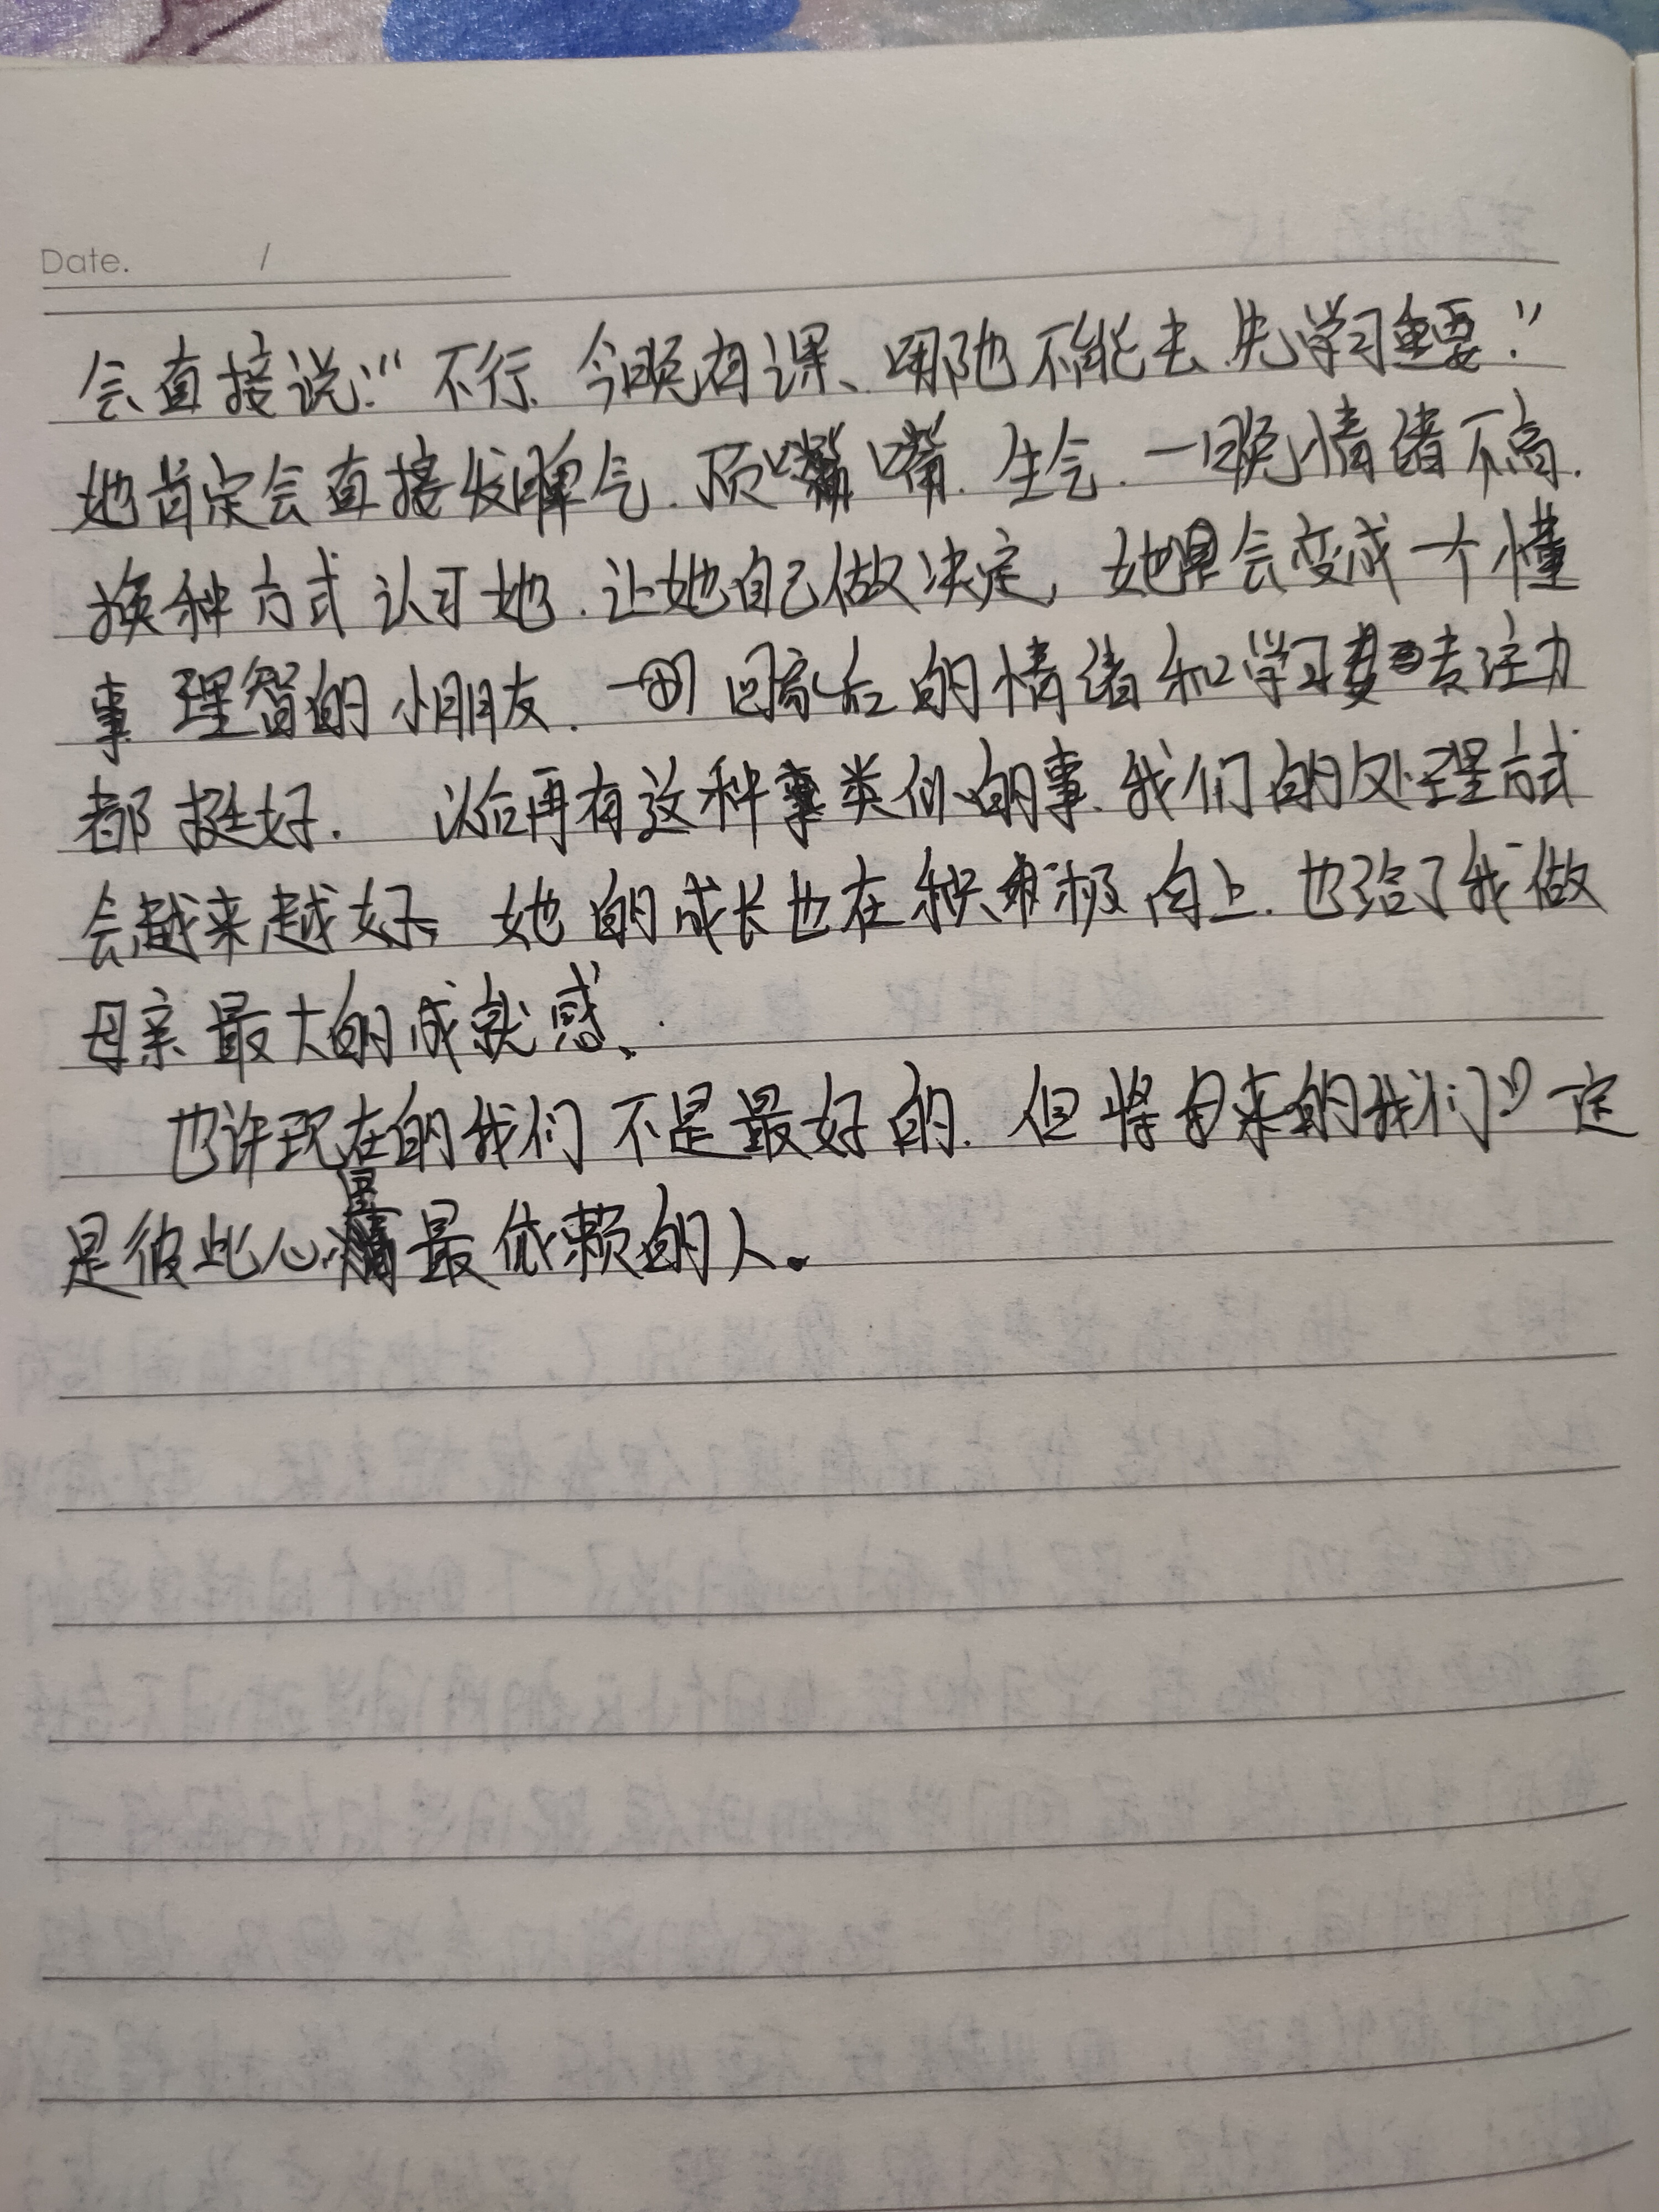 Date. /
会直接说:“不行、今晚有课、哪也不能去.先学习重要.”
她肯定会直接发脾气.顶嘴.生气.一晚情绪不高.
换种方式认可她.让她自己做决定,她会变成一个懂
事理智的小朋友.回家后的情绪和学习专注力
都挺好.以后再有这种类似的事.我们的处理方式
会越来越好,她的成长也在积极向上.也给了我做
母亲最大的成就感、.
也许现在的我们不是最好的.但将来的我们一定
是彼此心里最依赖的人。